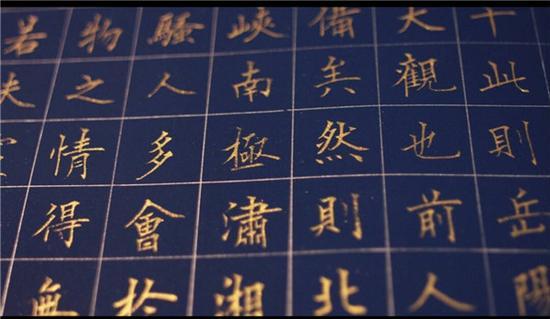 千此則岳陽
大觀也前人
備矣然則北
峽南極瀟湘
騷人多會於
物之情得無
若夫